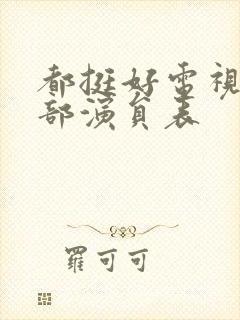 都挺好電視
部演員表
羅可可